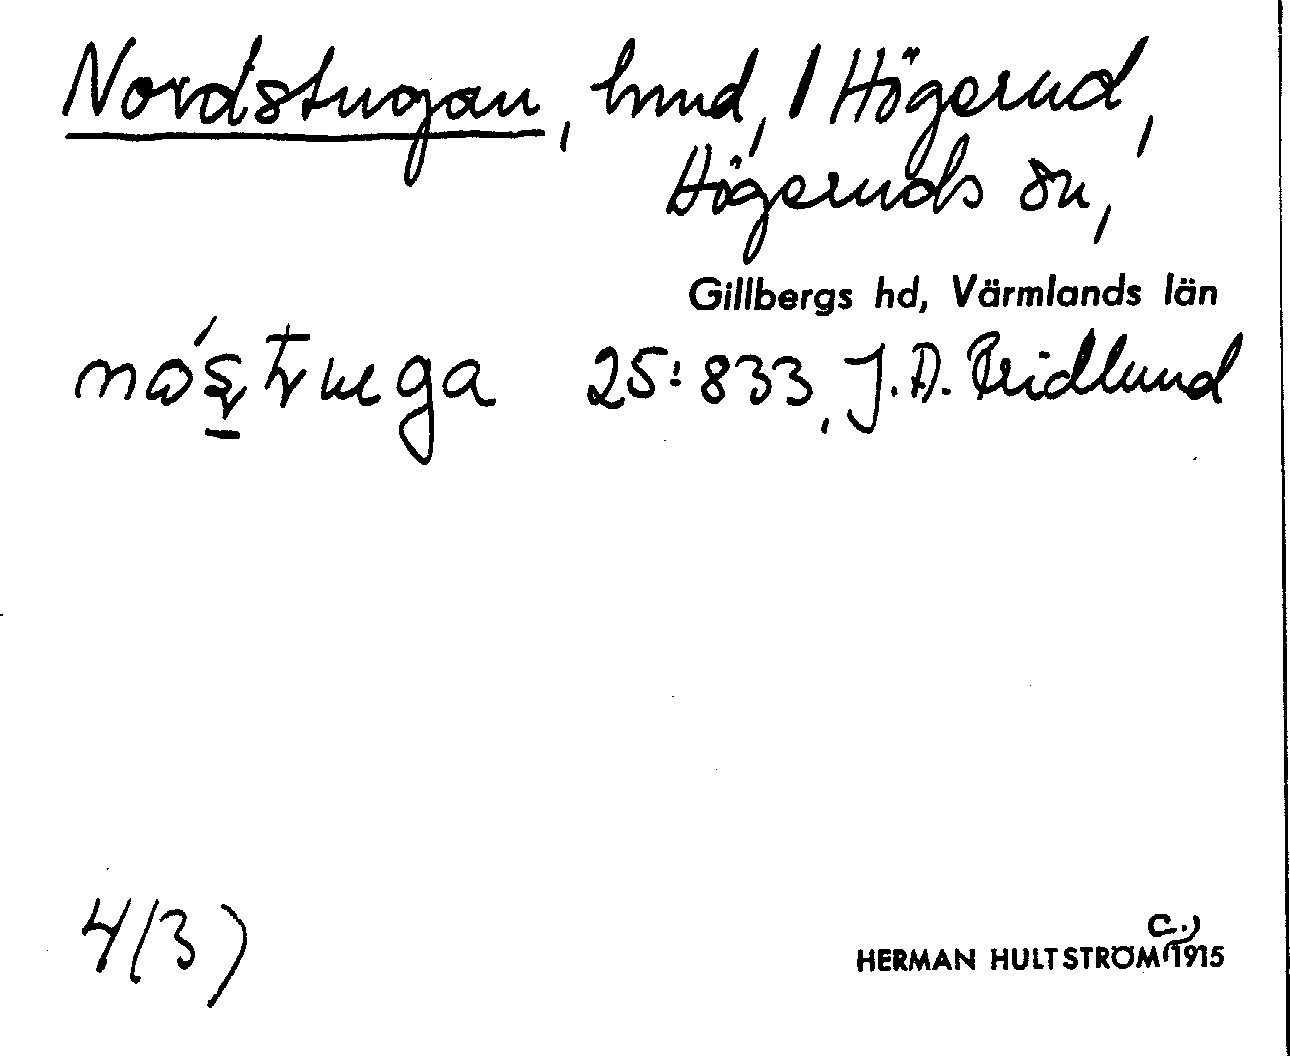 Nordstugan, hmd, 1 Högerud,
Högeruds sn,
Gillbergs hd, Värmlands län
25:833, J. A. Fridlund
4(3)
HERMAN HULTSTRÖM (c.) 1915